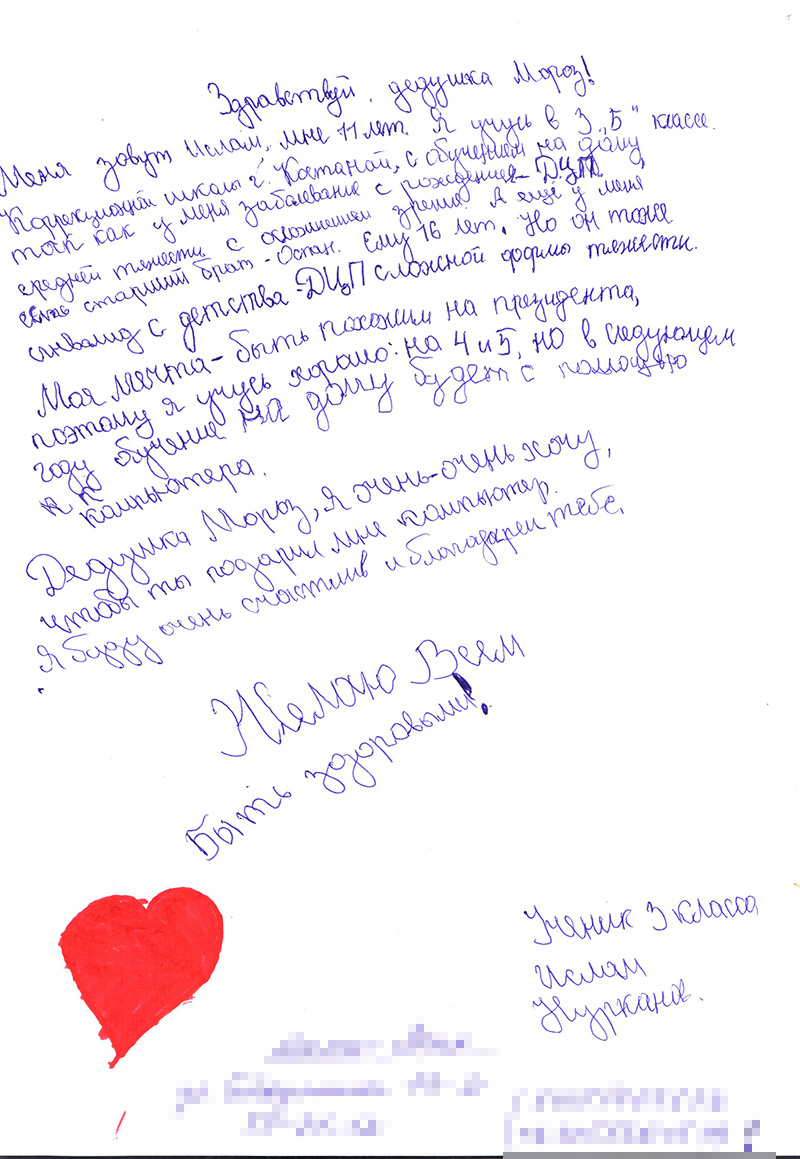 Здравствуй, дедушка Мороз!
Меня зовут Ислам, мне 11 лет. Я учусь в 3 „Б" классе.
Коррекционной школы г. Костанай, с обучением на дому
так как у меня заболевание с рождения - ДЦП
средней тяжести с осложнением зрения. А еще у меня
есть старший брат - Оспан. Ему 16 лет. Но он тоже
инвалид с детства - ДЦП сложной формы тяжести.
Моя мечта - быть похожим на президента,
поэтому я учусь хорошо: на 4 и 5, но в следующем
году обучение на дому будет с помощью
компьютера.
Дедушка Мороз, я очень-очень хочу,
чтобы ты подарил мне компьютер.
Я буду очень счастлив и благодарен тебе.
Желаю Всем
Быть здоровыми!
Ученик 3 класса
Ислам
Нурканов.